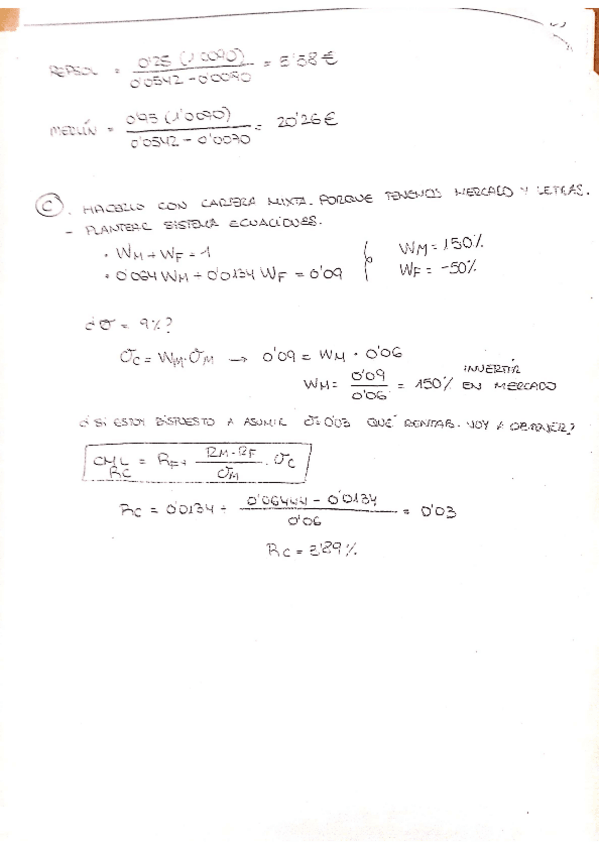 REPSOL = 0'25 (1'0090) / 0'0542 - 0'0090 = 5'58€
MERLÍN = 0'93 (1'0070) / 0'0542 - 0'0070 = 20'26€
C. HACERLO CON CARTERA MIXTA. PORQUE TENEMOS MERCADO Y LETRAS.
- PLANTEAR SISTEMA ECUACIONES.
· WM + WF = 1
· 0'064 WM + 0'0134 WF = 0'09
WM = 150%
WF = -50%
¿σ = 9%?
σC = WM·σM → 0'09 = WM · 0'06
WM = 0'09 / 0'06 = 150% INVERTIR EN MERCADO
¿SI ESTOY DISPUESTO A ASUMIR σ=0'03 QUÉ RENTAB. VOY A OBTENER?
CML RC = RF + RM-RF / σM · σC
RC = 0'0134 + 0'06444 - 0'0134 / 0'06 = 0'03
RC = 3'89%